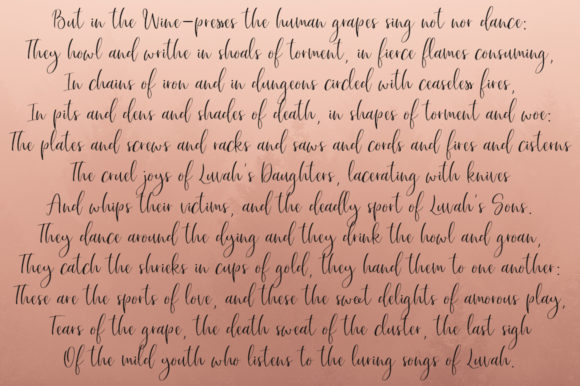 But in the Wine-presses the human grapes sing not nor dance:
They howl and writhe in shoals of torment, in fierce flames consuming,
In chains of iron and in dungeons circled with ceaseless fires,
In pits and dens and shades of death, in shapes of torment and woe:
The plates and screws and racks and saws and cords and fires and cisterns
The cruel joys of Luvah's Daughters, lacerating with knives
And whips their victims, and the deadly sport of Luvah's Sons.
They dance around the dying and they drink the howl and groan,
They catch the shrieks in cups of gold, they hand them to one another:
These are the sports of love, and these the sweet delights of amorous play,
Tears of the grape, the death sweat of the cluster, the last sigh
Of the mild youth who listens to the luring songs of Luvah.